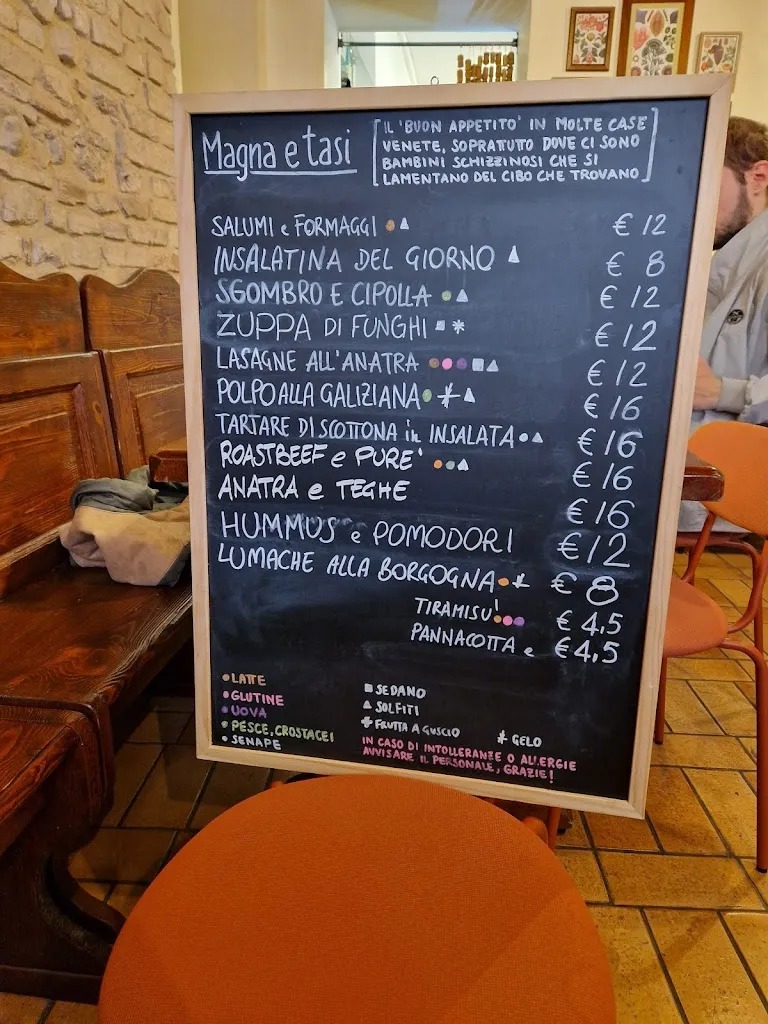 Magna e tasi
[IL 'BUON APPETITO' IN MOLTE CASE
VENETE, SOPRATTUTTO DOVE CI SONO
BAMBINI SCHIZZINOSI CHE SI
LAMENTANO DEL CIBO CHE TROVANO]
SALUMI e FORMAGGI € 12
INSALATINA DEL GIORNO € 8
SGOMBRO E CIPOLLA € 12
ZUPPA DI FUNGHI € 12
LASAGNE ALL'ANATRA € 12
POLPO ALLA GALIZIANA € 16
TARTARE DI SCOTTONA in INSALATA € 16
ROASTBEEF e PURE' € 16
ANATRA e TEGHE € 16
HUMMUS e POMODORI € 12
LUMACHE ALLA BORGOGNA € 8
TIRAMISU' € 4,5
PANNACOTTA e € 4,5
LATTE
GLUTINE
UOVA
PESCE, CROSTACEI
SENAPE
SEDANO
SOLFITI
FRUTTA A GUSCIO
* GELO
IN CASO DI INTOLLERANZE O ALLERGIE
AVVISARE IL PERSONALE, GRAZIE!